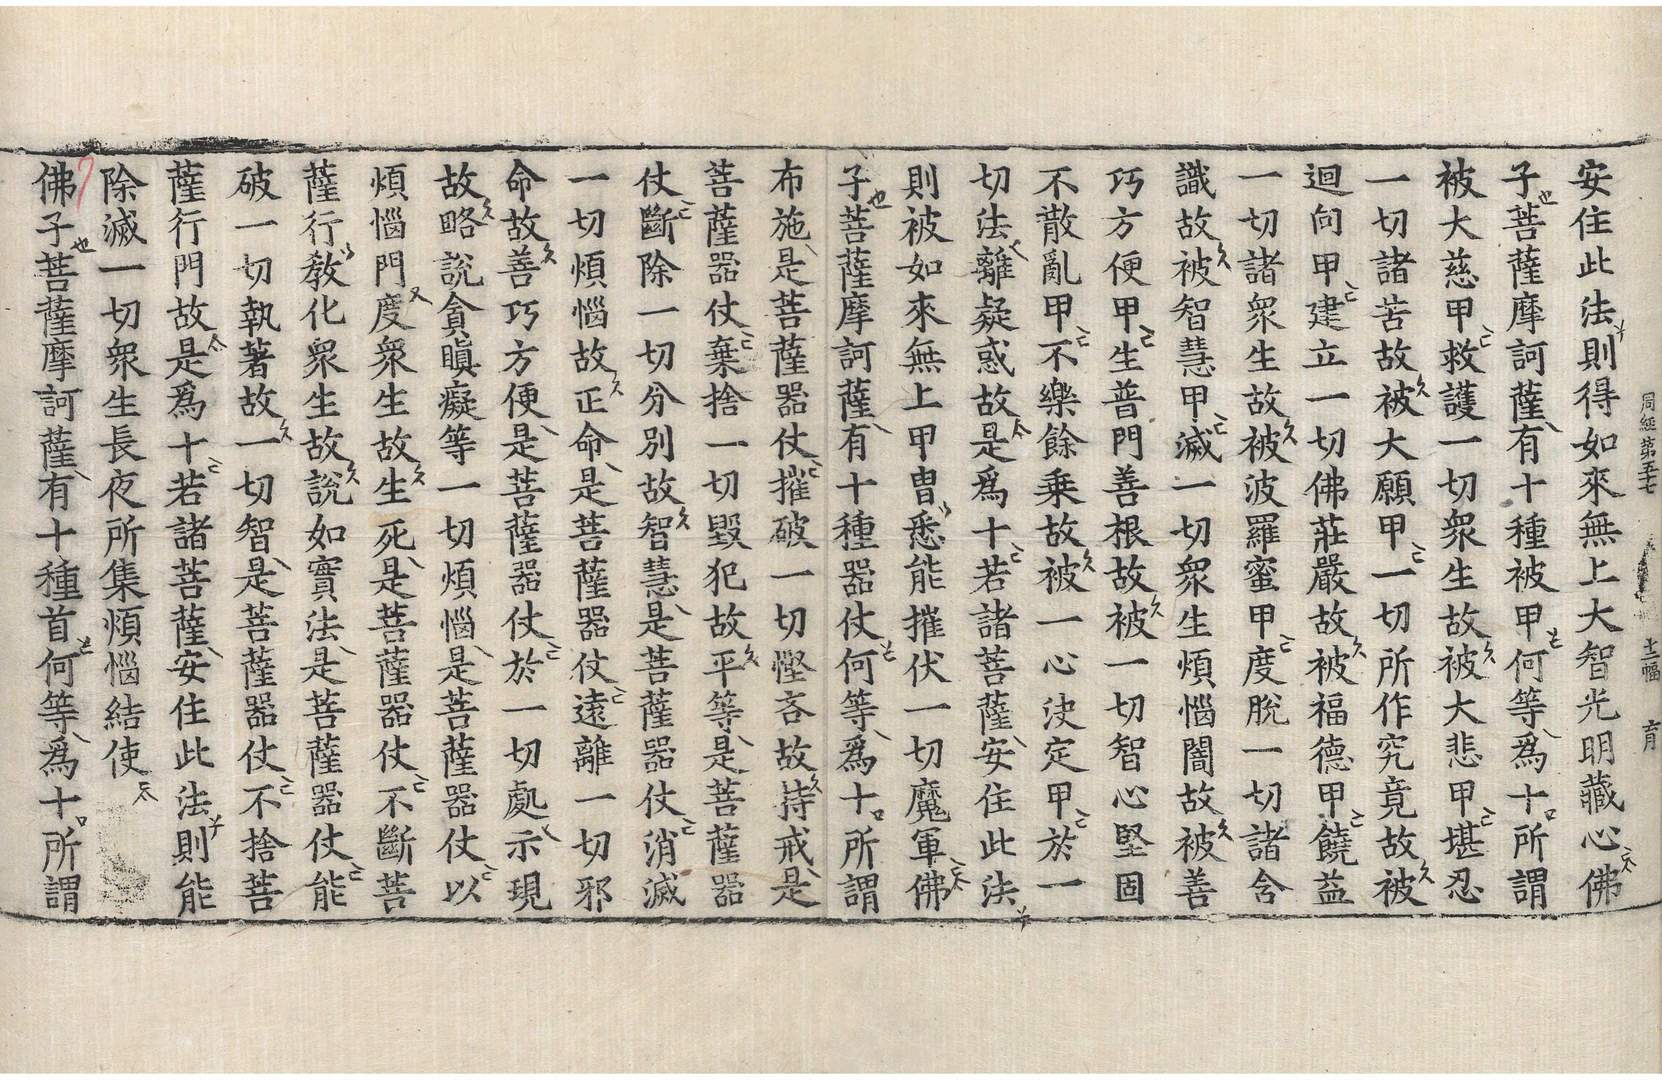 同經第五十七 十二幅 育
安住此法則得如來無上大智光明藏心佛
子菩薩摩訶薩有十種被甲何等爲十所謂
被大慈甲救護一切衆生故被大悲甲堪忍
一切諸苦故被大願甲一切所作究竟故被
迴向甲建立一切佛莊嚴故被福德甲饒益
一切諸衆生故被波羅蜜甲度脫一切諸含
識故被智慧甲滅一切衆生煩惱闇故被善
巧方便甲生普門善根故被一切智心堅固
不散亂甲不樂餘乘故被一心決定甲於一
切法離疑惑故是爲十若諸菩薩安住此法
則被如來無上甲冑悉能摧伏一切魔軍佛
子菩薩摩訶薩有十種器仗何等爲十所謂
布施是菩薩器仗摧破一切慳吝故持戒是
菩薩器仗棄捨一切毀犯故平等是菩薩器
仗斷除一切分別故智慧是菩薩器仗消滅
一切煩惱故正命是菩薩器仗遠離一切邪
命故善巧方便是菩薩器仗於一切處示現
故略說貪瞋癡等一切煩惱是菩薩器仗以
煩惱門度衆生故生死是菩薩器仗不斷菩
薩行教化衆生故說如實法是菩薩器仗能
破一切執著故一切智是菩薩器仗不捨菩
薩行門故是爲十若諸菩薩安住此法則能
除滅一切衆生長夜所集煩惱結使
佛子菩薩摩訶薩有十種首何等爲十所謂